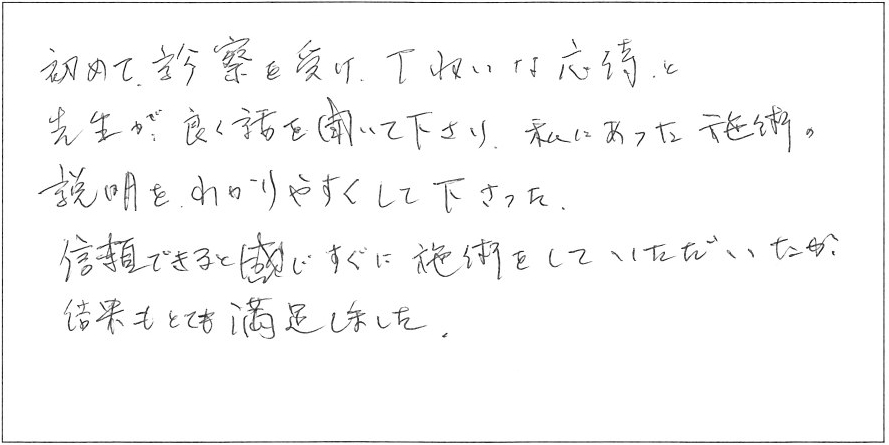 初めて、診察を受け、丁ねいな応待と
先生が、良く話を聞いて下さり、私にあった施術の
説明を、わかりやすくして下さった。
信頼できると感じすぐに施術をしていただいたが、
結果もとても満足しました。